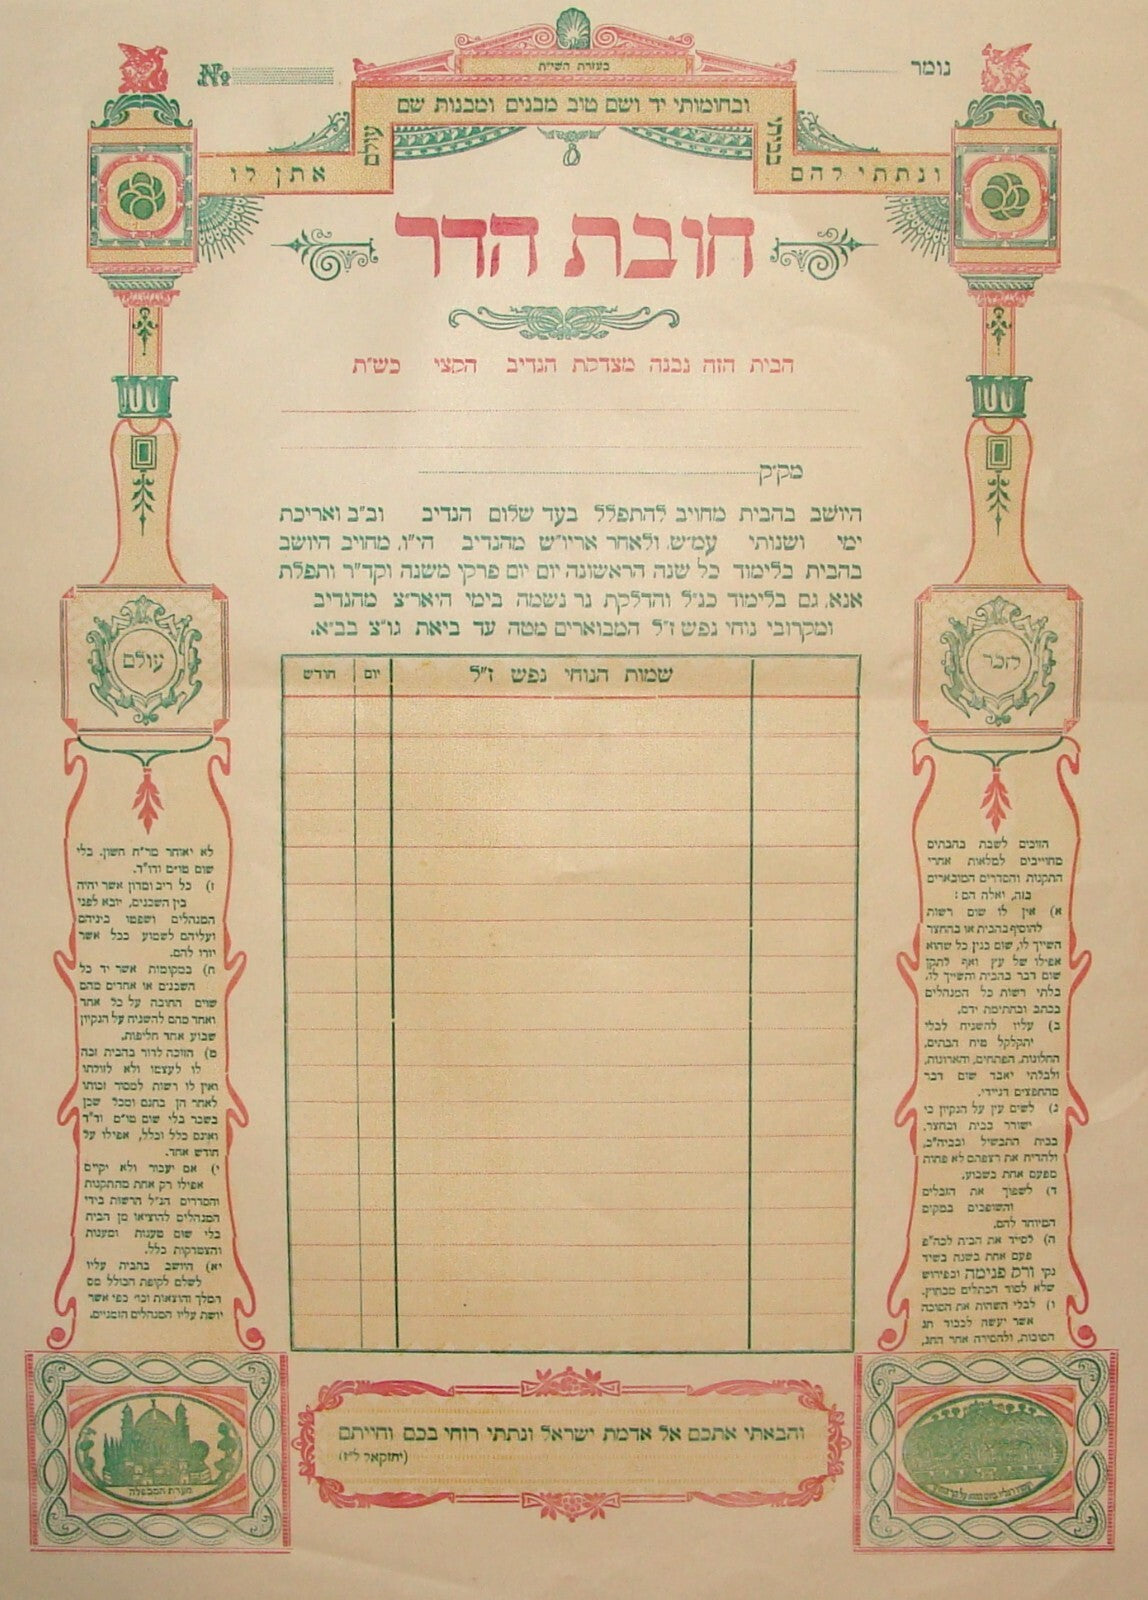 בעזרת השי״ת
נומר
№
ונתתי להם
בביתי
ובחומותי יד ושם טוב מבנים ומבנות שם
עולם
אתן לו
חובת הדר
הבית הזה נבנה מצדקת הנדיב הקצי כש״ת
מק״ק
היושב בהבית מחויב להתפלל בעד שלום הנדיב וב״ב ואריכת
ימי ושנותי עמ״ש. ולאחר אריו״ש מהנדיב הי״ו, מחויב היושב
בהבית בלימוד כל שנה הראשונה יום יום פרקי משנה וקד״ר ותפלת
אנא, גם בלימוד כנ״ל והדלקת נר נשמה בימי היאר״צ מהנדיב
ומקרובי נוחי נפש ז״ל המבוארים מטה עד ביאת גו״צ בב״א.
שמות הנוחי נפש ז״ל
יום
חודש
לזכר
עולם
הזוכים לשבת בהבתים
מחוייבים למלאות אחרי
התקנות והסדרים המובארים
בזה, ואלה הם:
א) אין לו שום רשות
להוסיף בהבית או בהחצר
השייך לו, שום בנין כל שהוא
אפילו של עץ ואף לתקן
שום דבר בהבית והשייך לו,
בלתי רשות כל המנהלים
בכתב ובחתימת ידם.
ב) עליו להשגיח לבלי
יתקלקל טיח הבתים,
החלונות, הפתחים, והארונות,
ולבלתי יאבד שום דבר
מהחפצים דניידי.
ג) לשים עין על הנקיון כי
ישורר בבית ובחצר,
בבית התבשיל ובביה״כ,
ולהדיח את רצפתם לא פחות
מפעם אחת בשבוע.
ד) לשפוך את הזבלים
והשופכים במקום
המיוחד להם.
ה) לסייד את הבית לכה״פ
פעם אחת בשנה בשיד
נקי ורק פנימה ובפירוש
שלא לסוד הכתלים מבחוץ.
ו) לבלי השהות את הסוכה
אשר יעשה לכבוד חג
הסוכות, ולהסירה אחר החג,
לא יאוחר מר״ח חשון, בלי
שום טו״מ ודו״ד.
ז) כל ריב ומדון אשר יהיה
בין השכנים, יובא לפני
המנהלים ושפטו ביניהם
ועליהם לשמוע ככל אשר
יורו להם.
ח) במקומות אשר יד כל
השכנים או אחדים מהם
שוים החובה על כל אחד
ואחד מהם להשגיח על הנקיון
שבוע אחד חליפות.
ט) הזוכה לדור בהבית זכה
לו לעצמו ולא לזולתו
ואין לו רשות למסור זכותו
לאחר הן בחנם ומכל שכן
בשכר בלי שום טו״מ וד״ד
ואינם כלל וכלל, אפילו על
חודש אחד.
י) אם יעבור ולא יקיים
אפילו רק אחת מהתקנות
והסדרים הנ״ל הרשות בידי
המנהלים להוציאו מן הבית
בלי שום טענות ומענות
והצטדקות כלל.
יא) היושב בהבית עליו
לשלם לקופת הכולל מס
המלך והוצאות וכו׳ כפי אשר
יושת עליו המנהלים הזמניים.
והבאתי אתכם אל אדמת ישראל ונתתי רוחי בכם וחייתם
(יחזקאל ל״ז)
מערת המכפלה